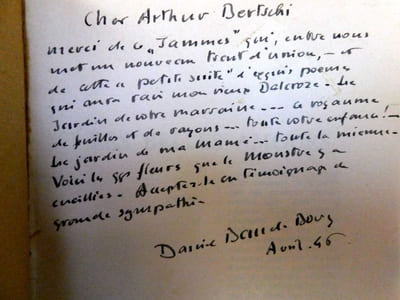 Cher Arthur Bertschi
merci de ce „Jammes" qui, entre nous
met un nouveau trait d'union, – et
de cette « petite suite" d'exquis poèmes
qui aura ravi mon vieux Dalcroze. Le
Jardin de votre marraine --- ce royaume
de feuilles et de rayons --- toute votre enfance! –
Le jardin de ma mamé --- toute la mienne.
Voici les fleurs que le Monstre y a
cueillies. Acceptez-le en témoignage de
grande sympathie.
Daniel Baud-Bovy
Avril. 46